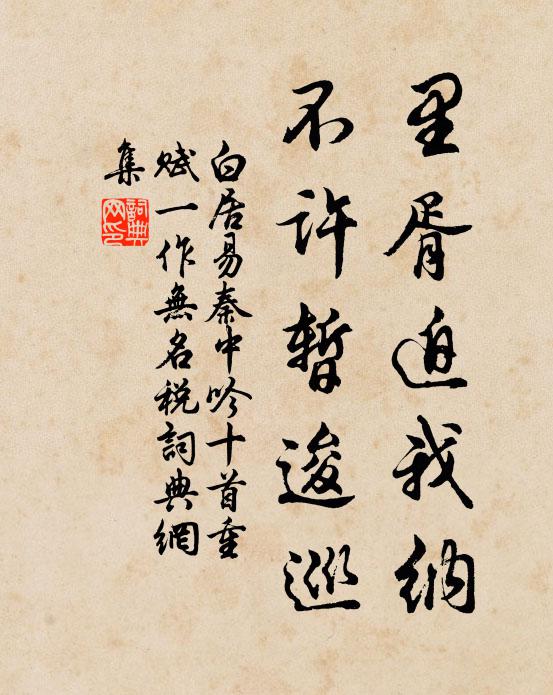 里胥迫我納
不許暫逡巡
白居易秦中吟十首重
賦一作無名稅詞典網
集
詞典網印